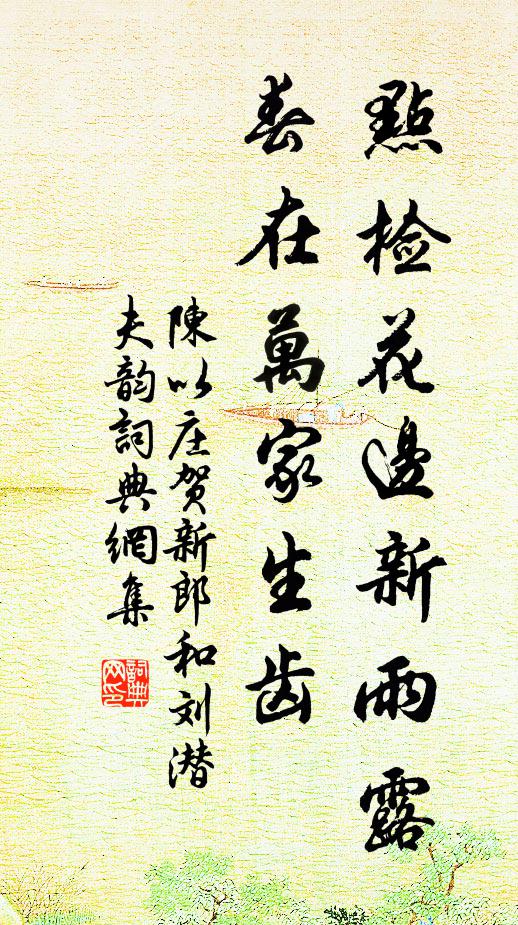 點检花邊新雨露
春在萬家生齿
陳以庄贺新郎和刘潜
夫韵詞典網集
詞典
网印